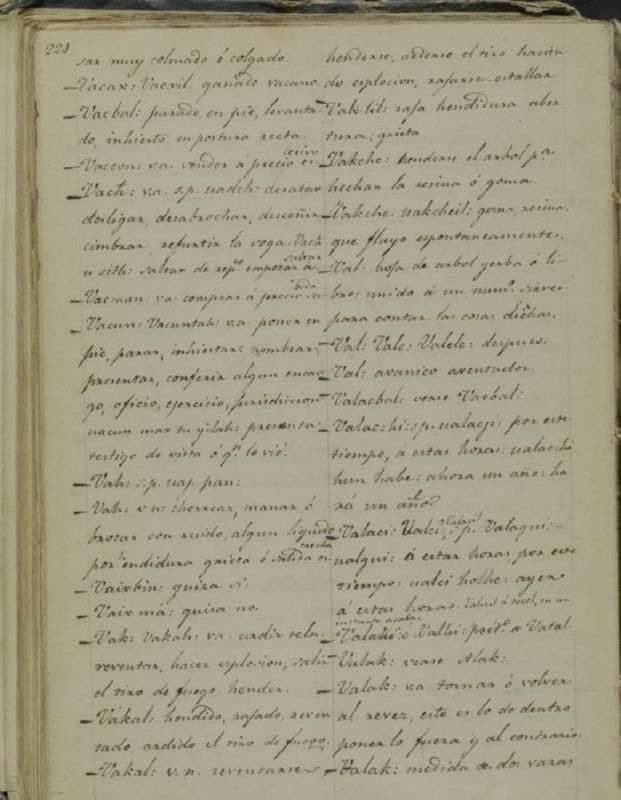 221
sar muy colmado ó colgado.
Vacax: Vacxil: ganado vacuno
Vacbal: parado, en pie, levanta-
do, inhiesto, en postura recta.
Vaccon: v.a. vender á precio es-
cesivo
Vach: v.a. s.p. uadch: desatar
desligar, desabrochar, desceñir
cimbrar, refuntir la voga. Vach
u sith: saltar de rep.e empezar á
saltar
Vacman: va. comprar á precio su-
bido
Vacun: Vacuntah: v.a. poner en
pie, parar, inhiestar: nombrar,
presentar, conferir algun encar-
go, oficio, ejercicio, jurisdiccion
uacun max tu yilah: presenta:
testigo de vista ó q.n lo vió.
Vah: s.p. uaj. pan:
Vah: v.n: chorrear, manar ó
brotar con ruido, algun liquido
por hendidura grieta ó salida es-
trecha
Vaixbin: quiza si.
Vaixmá: quisa no.
Vak: Vakah: va. urdir tela.
reventar, hacer esplosion, salir
el tiro de fuego. hender.
Vákal: hendido, rajado, reven
tado, ardido el tiro de fuego.
Vakal: v.n. reventarse
henderse, arderse el tiro hacien
do esplocion, rajarse. estallar
Vaklil: raja hendidura aber
tura, grieta
Vakche: henderse el arbol p.a
hechar la resina ó goma.
Vakche. uakcheil: goma, resina.
que fluye espontaneamente.
Val: hoja de arbol yerba ó li-
bro: unido á un num.o sirve
para contar las cosas dichas.
Val: Vale: Valele: despues.
Val: avanico aventador.
Valacbal: vease Vacbal:
Valac-hi: s.p. ualacji: por este
tiempo, a estas horas: ualac-hi
hun habe: ahora un año: ha
rá un año?
Valaci: Ualci: s.p. Valaqui:
Valacil
ualqui: á estas horas, por este
tiempo: ualci holhe: ayer
á estas horas.
Valahi: ó Valhi: pret.o de Vatal.
Valak: vease Alak:
Valak: v.a. tornar ó volver
al revez, esto es lo de dentro
ponerlo fuera y al contrario.
Valak: medida de dos varas